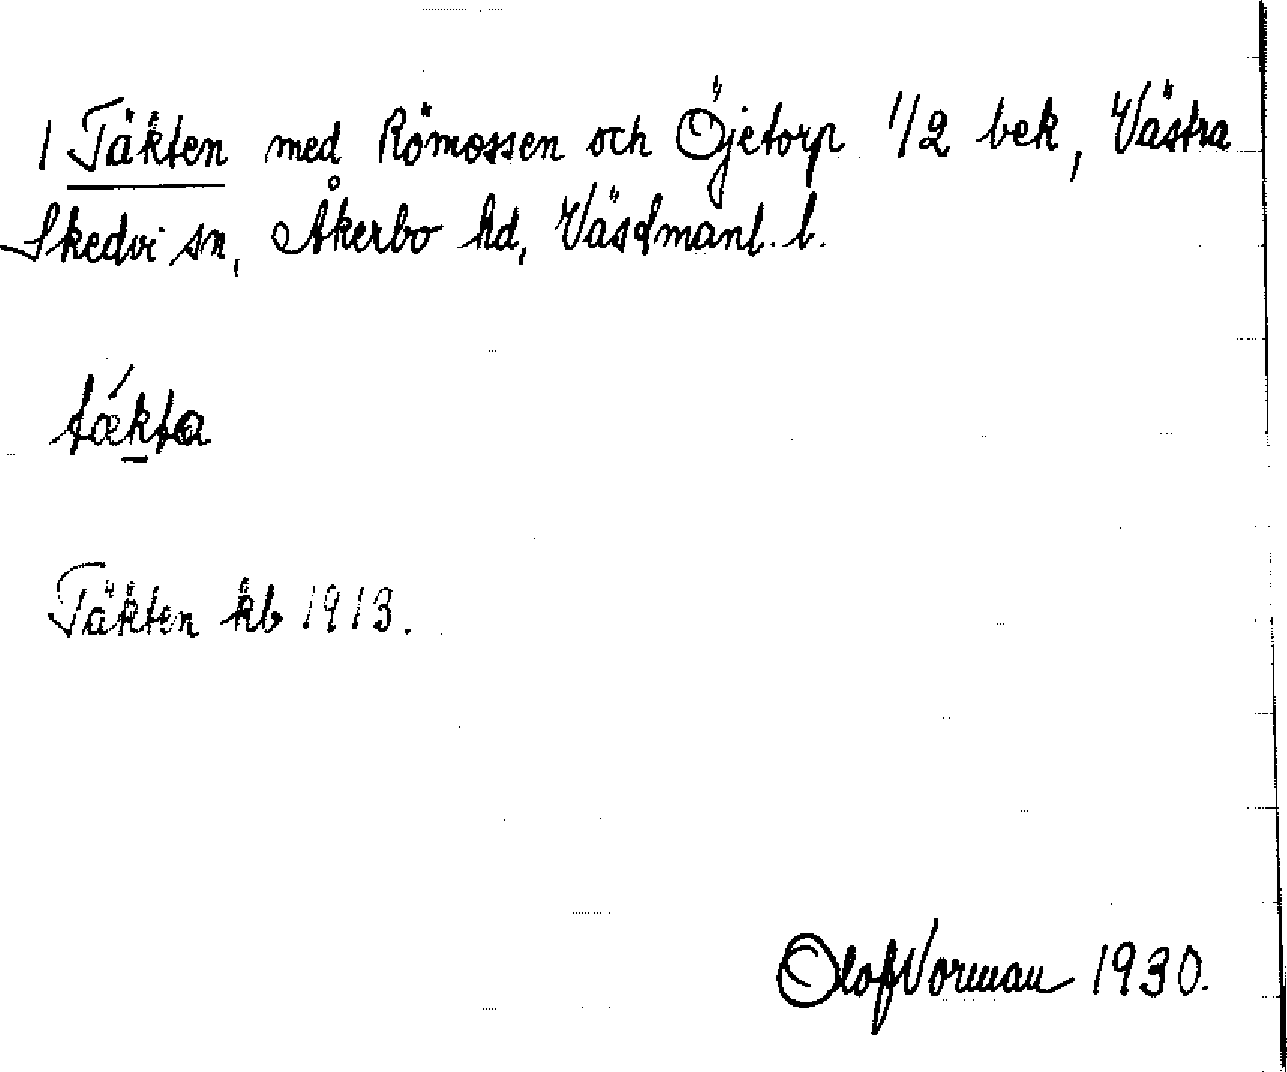 1 Täkten med Römossen och Öjetorp 1/2 bek, Västra
Skedvi sn, Åkerbo hd, Väsdmanl. l.
tǽkta
Täkten kb 1913.
Olof Vorman 1930.